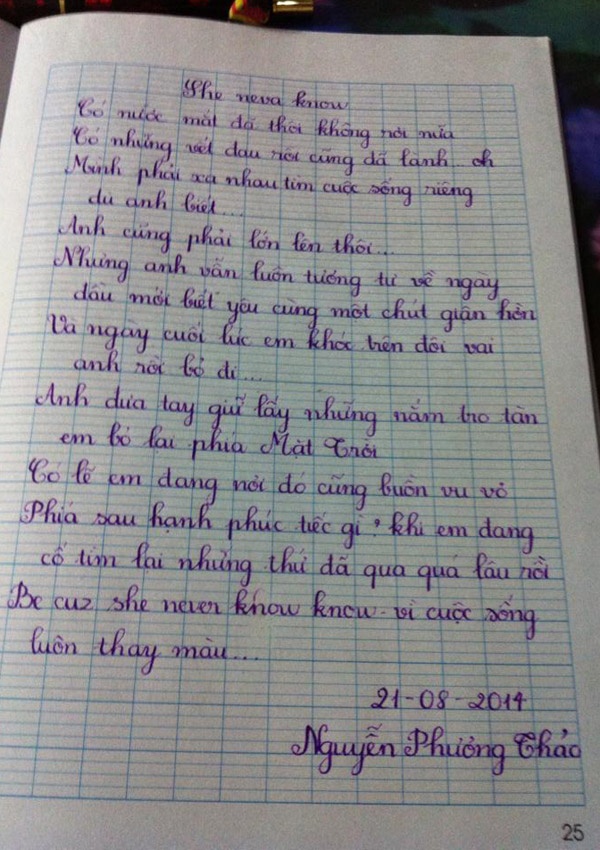 She neva know
Có nước mắt đã thôi không rơi nữa
Có những vết đau rồi cũng đã lành.. oh
Mình phải xa nhau tìm cuộc sống riêng
dù anh biết...
Anh cũng phải lớn lên thôi...
Nhưng anh vẫn luôn tương tư về ngày
đầu mới biết yêu cùng một chút giận hờn
Và ngày cuối lúc em khóc trên đôi vai
anh rồi bỏ đi...
Anh đưa tay giữ lấy những nắm tro tàn
em bỏ lại phía Mặt Trời
Có lẽ em đang nơi đó cũng buồn vu vơ
Phía sau hạnh phúc tiếc gì? khi em đang
cố tìm lại những thứ đã qua quá lâu rồi
Be cuz she never know know. vì cuộc sống
luôn thay màu...
21-08-2014
Nguyễn Phương Thảo
25